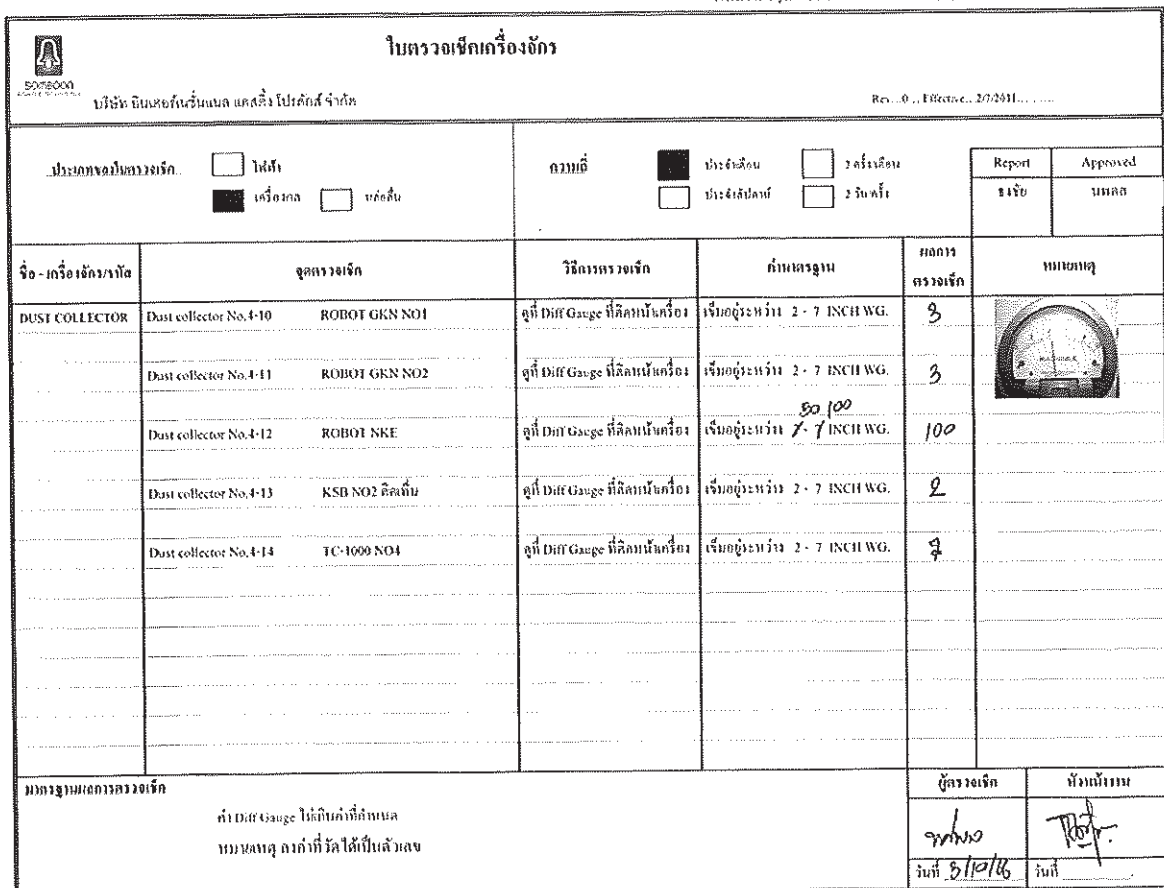 ใบตรวจเช็คเครื่องจักร
somboon
บริษัท อินเตอร์เนชั่นแนล แคสติ้ง โปรดักส์ จำกัด
Rev...0... Effective.. 2/7/2011........
ประเภทของใบตรวจเช็ค ไฟฟ้า
เครื่องกล หล่อลื่น
ความถี่ ประจำเดือน 2 ครั้ง/เดือน
ประจำสัปดาห์ 2 วัน/ครั้ง
Report Approved
ธงชัย นพดล
ชื่อ - เครื่องจักร/รหัส จุดตรวจเช็ก วิธีการตรวจเช็ก ค่ามาตรฐาน ผลการตรวจเช็ก หมายเหตุ
DUST COLLECTOR Dust collector No.4-10 ROBOT GKN NO1 ดูที่ Diff Gauge ที่ติดหน้าเครื่อง เข็มอยู่ระหว่าง 2 - 7 INCH WG. 3
Dust collector No.4-11 ROBOT GKN NO2 ดูที่ Diff Gauge ที่ติดหน้าเครื่อง เข็มอยู่ระหว่าง 2 - 7 INCH WG. 3
50 100
Dust collector No.4-12 ROBOT NKE ดูที่ Diff Gauge ที่ติดหน้าเครื่อง เข็มอยู่ระหว่าง 2 - 7 INCH WG. 100
Dust collector No.4-13 KSB NO2 ติดเทิ่ม ดูที่ Diff Gauge ที่ติดหน้าเครื่อง เข็มอยู่ระหว่าง 2 - 7 INCH WG. 2
Dust collector No.4-14 TC-1000 NO4 ดูที่ Diff Gauge ที่ติดหน้าเครื่อง เข็มอยู่ระหว่าง 2 - 7 INCH WG. 7
มาตรฐานผลการตรวจเช็ก
ค่า Diff Gauge ไม่เกินค่าที่กำหนด
หมายเหตุ ลงค่าที่วัดได้เป็นตัวเลข
ผู้ตรวจเช็ก หัวหน้างาน
วันที่ 3/10/66 วันที่